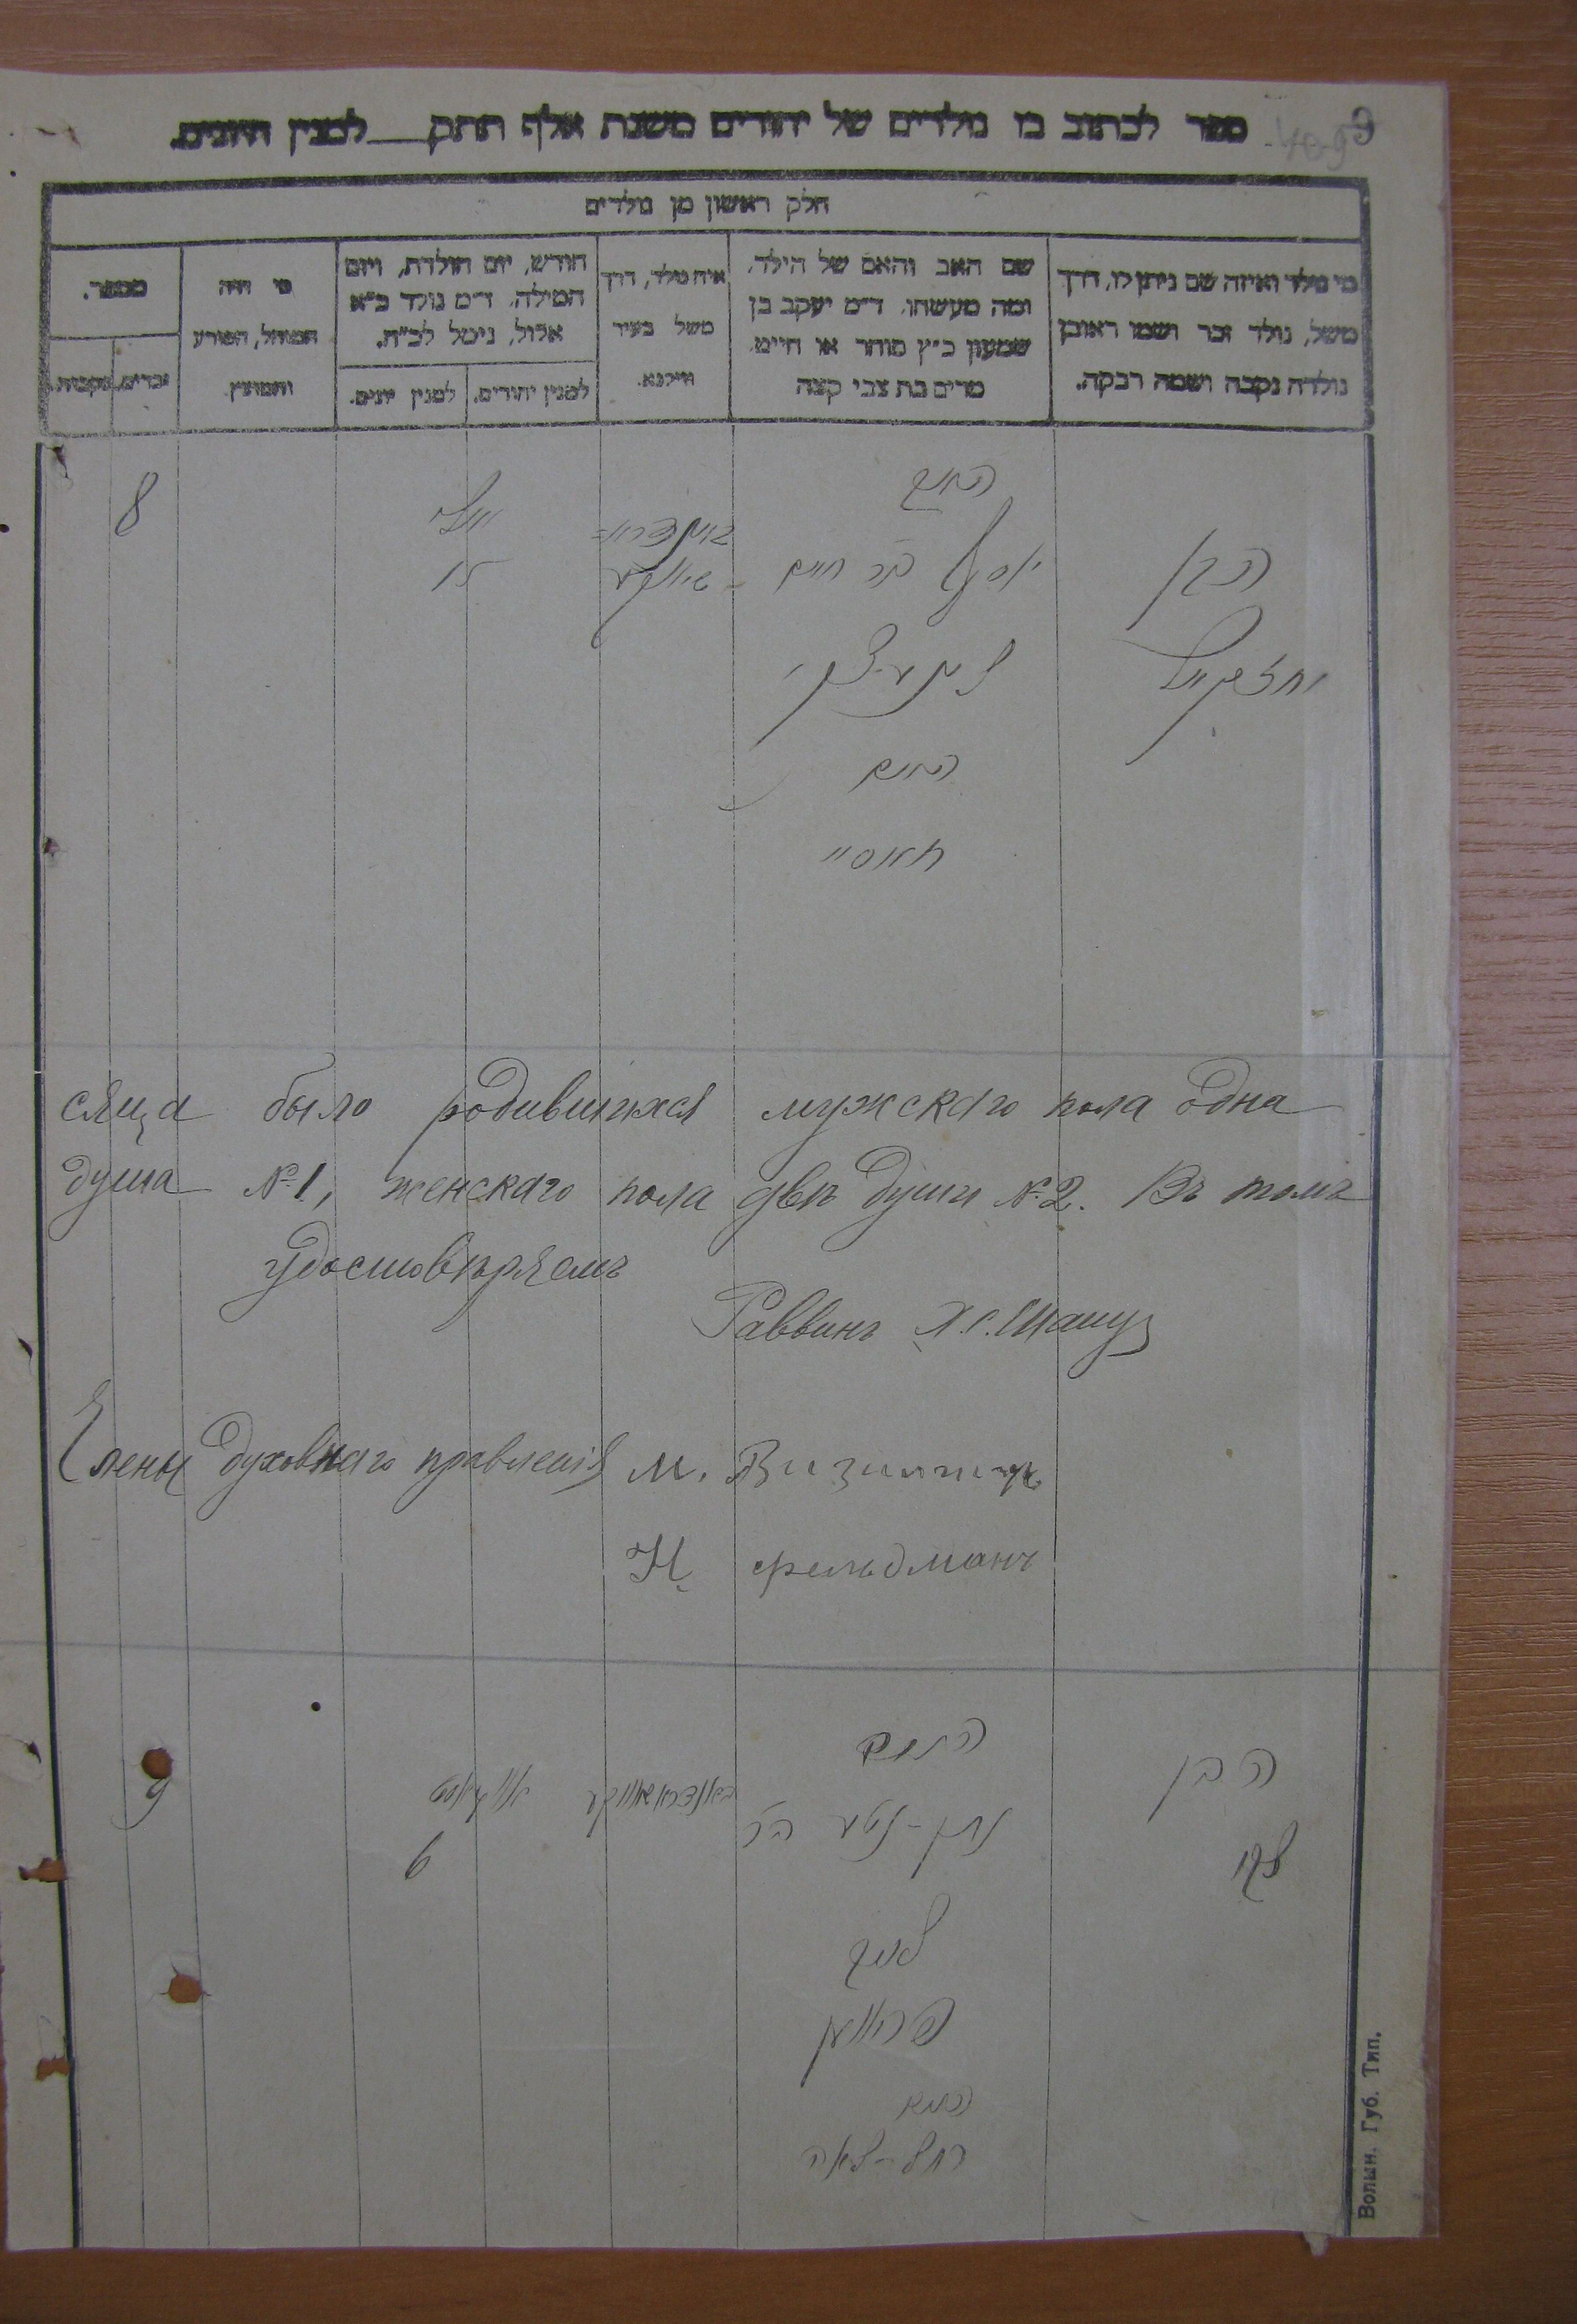 ספר לכתוב בו נולדים של יהודים משנת אלף תתק לסנין היונים.
חלק ראשון מן נולדים
מי נולד ואיזה שם ניתן לו, דרך
משל, נולד זכר ושמו ראובן
נולדה נקבה ושמה רבקה.
שם האב והאם של הילד,
ומה מעשהו, ד״מ יעקב בן
שמעון כ״ץ סוחר או חייט.
מרים בת צבי קצה
איה נולד, דרך
משל בעיר
ווילנא.
חודש, יום הולדת, ויום
המילה, ד״מ נולד כ״א
אלול, נימל לכ״ח.
למנין יהודים.
למנין יונים.
מי היה
המוהל, הפורע
והמוצץ
מספר.
זכרים.
נקבות.
הבן
יחזקאל
האב
יוסף בר חיים
האם
חאסיי
יולי
15
8
сяца было родившихся мужскаго пола одна
душа № 1, женскаго пола двѣ души № 2. Въ томъ
удостовѣряемъ
Раввинъ Х. С.
Члены духовнаго правленія М.
Н. Фельдманъ
הבן
האב
נתן-נטע בר
לייב
האם
רחל-לאה
אווגוסט
6
9
Волын. Губ. Тип.